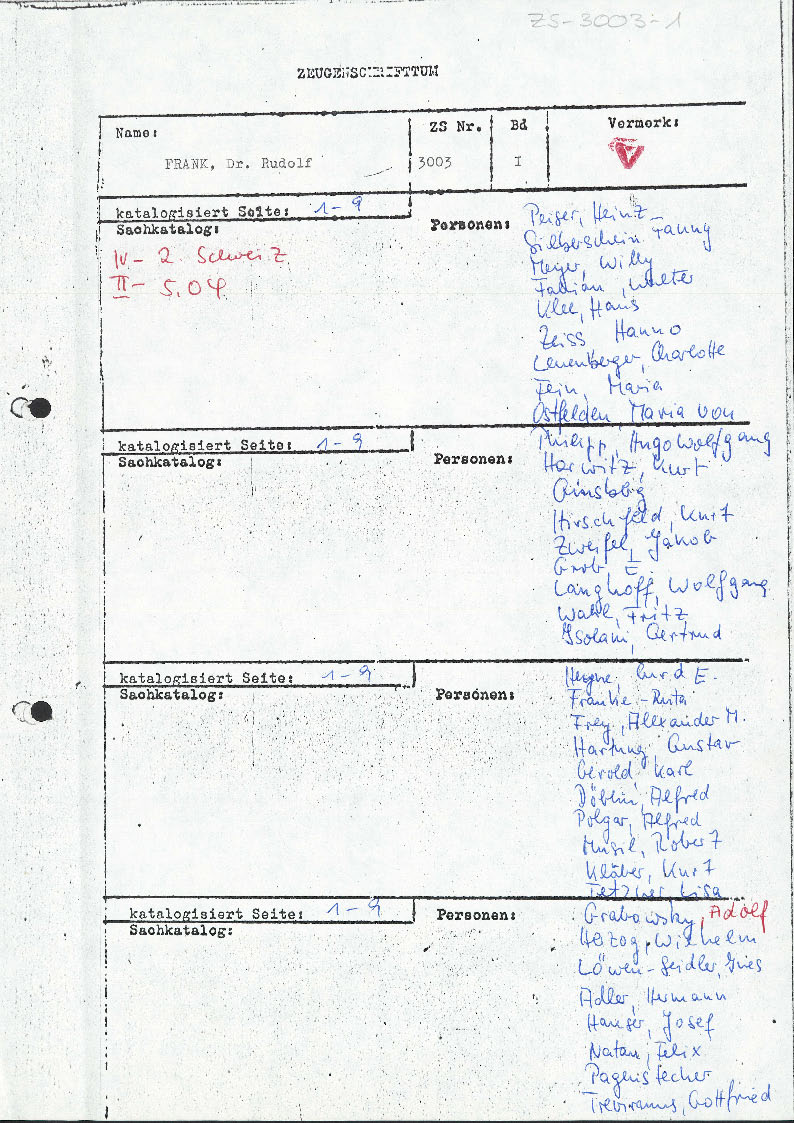 ZS-3003-1
ZEUGENSCHRIFTTUM
Name: ZS Nr. Bd Vermerk:
FRANK, Dr. Rudolf 3003 I
katalogisiert Seite: 1-9
Sachkatalog: Personen:
IV-2 Schweiz
II-5.04
Peiser, Heinz
Silberschein Fanny
Meyer, Willy
Fabian, Walter
Klee, Hans
Zeiss Hanno
Leuenberger, Charlotte
Fein, Maria
Ostfelden Maria von
katalogisiert Seite: 1-9
Sachkatalog: Personen:
Philipp, Hugo Wolfgang
Horwitz, Kurt
Ginsberg
Hirschfeld, Kurt
Zweifel, Jakob
Grob E.
Langhoff, Wolfgang
Wahl, Fritz
Isolani, Gertrud
katalogisiert Seite: 1-9
Sachkatalog: Personen:
Heyne, Curd E.
Franke-Ruta
Frey, Alexander M.
Hartung Gustav
Gerold Karl
Döblin, Alfred
Polgar, Alfred
Musil, Robert
Kläber, Kurt
Tetzner Lisa
katalogisiert Seite: 1-9
Sachkatalog: Personen:
Grabowsky, Adolf
Herzog, Wilhelm
Löwen-Seidler,
Adler, Hermann
Hauser, Josef
Natan, Felix
Pagenstecher
Treviranus, Gottfried